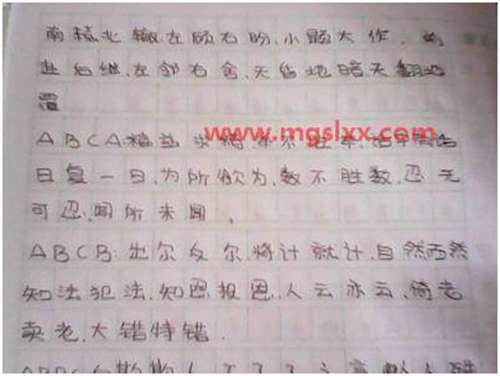 南辕北辙左顾右盼,小题大作.前
赴后继.左邻右舍,天昏地暗天翻地
覆
ABCA精益求精
www.mgslxx.com
日复一日,为所欲为,数不胜数,忍无
可忍,闻所未闻.
ABCB:出尔反尔,将计就计,自然而然
知法犯法,知恩报恩,人云亦云,倚老
卖老,大错特错.